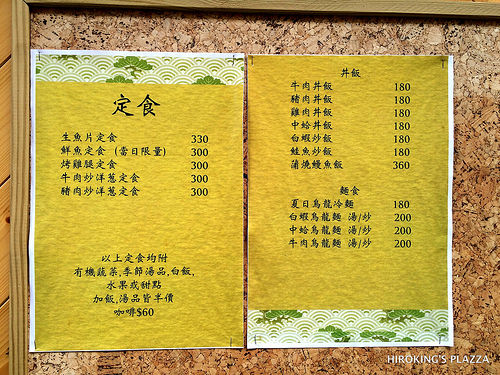 定食
生魚片定食 330
鮮魚定食 (當日限量) 300
烤雞腿定食 300
牛肉炒洋蔥定食 300
豬肉炒洋蔥定食 300
以上定食均附
有機蔬菜,季節湯品,白飯,
水果或甜點
加飯,湯品皆半價
咖啡$60
丼飯
牛肉丼飯 180
豬肉丼飯 180
雞肉丼飯 180
中蛤丼飯 180
白蝦炒飯 180
鮭魚炒飯 180
蒲燒鰻魚飯 360
麵食
夏日烏龍冷麵 180
白蝦烏龍麵 湯/炒 200
中蛤烏龍麵 湯/炒 200
牛肉烏龍麵 湯/炒 200
HIROKING'S PLAZZA